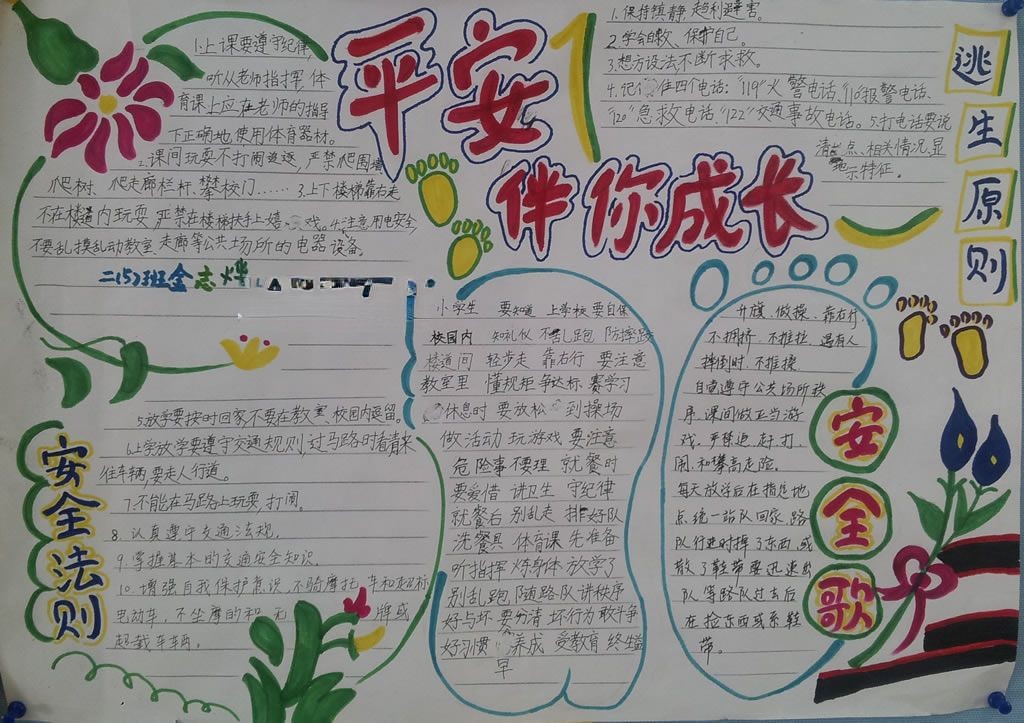 平安
伴你成长
1.上课要遵守纪律,
听从老师指挥,体
育课上应在老师的指导
下正确地使用体育器材。
2.课间玩耍不打闹追逐,严禁爬围墙
爬树、爬走廊栏杆、攀校门……3.上下楼梯靠右走
不在楼道内玩耍 严禁在楼梯扶手上嬉戏。4.注意用电安全,
不要乱摸乱动教室、走廊等公共场所的电器设备。
二(5)班金志烨
5.放学要按时回家不要在教室、校园内逗留。
6.上学放学要遵守交通规则,过马路时看清来
往车辆,要走人行道。
7.不能在马路上玩耍,打闹。
8.认真遵守交通法规。
9.掌握基本的交通安全知识。
10.增强自我保护意识,不骑摩托车和超标
电动车,不坐摩的和无牌或
超载车车辆。
安全法则
1.保持镇静,趋利避害。
2.学会自救、保护自己。
3.想方设法不断求救。
4.记准四个电话:"119"火警电话、"110"报警电话、
"120"急救电话、"122"交通事故电话。5.打电话要说
清地点、相关情况、显
示特征。
逃生原则
小学生 要知道 上学校 要自保
校园内 知礼仪 不乱跑 防摔跤
楼道间 轻步走 靠右行 要注意
教室里 懂规矩 争达标 赛学习
休息时 要放松 到操场
做活动 玩游戏 要注意
危险事 不要理 就餐时
要爱惜 讲卫生 守纪律
就餐后 别乱走 排好队
洗餐具 体育课 先准备
听指挥 炼身体 放学了
别乱跑 随路队 讲秩序
好与坏 要分清 坏行为 敢斗争
好习惯 早养成 受教育 终生益
升旗、做操、靠右行、
不拥挤,不推拉,遇有人
摔倒时,不推搡
自觉遵守公共场所秩
序,课间做正当游
戏,严禁追、赶、打、
闹、和攀高走险。
每天放学后在指定地
点统一站队回家,路
队行进时掉了东西,或
散了鞋带要迅速出
队,等路队过去后
在捡东西或系鞋
带。
安全歌